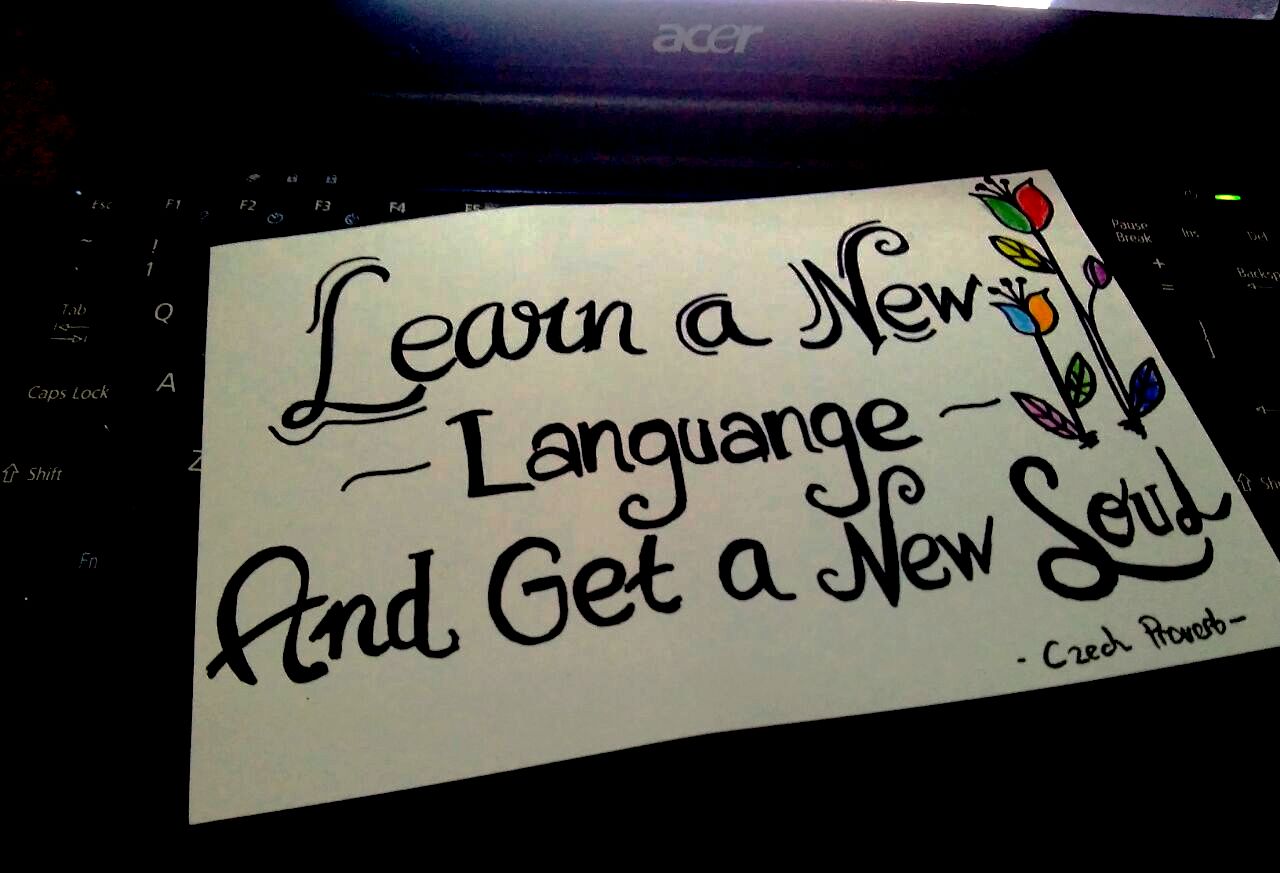 acer
Esc F1 F2 F3 F4 F5
Pause Break Ins Del
~ ! 1
+ = Backsp
Tab Q
Caps Lock A
Shift Z
Fn
Learn a New
~ Languange ~
And Get a New Soul
- Czech Proverb -